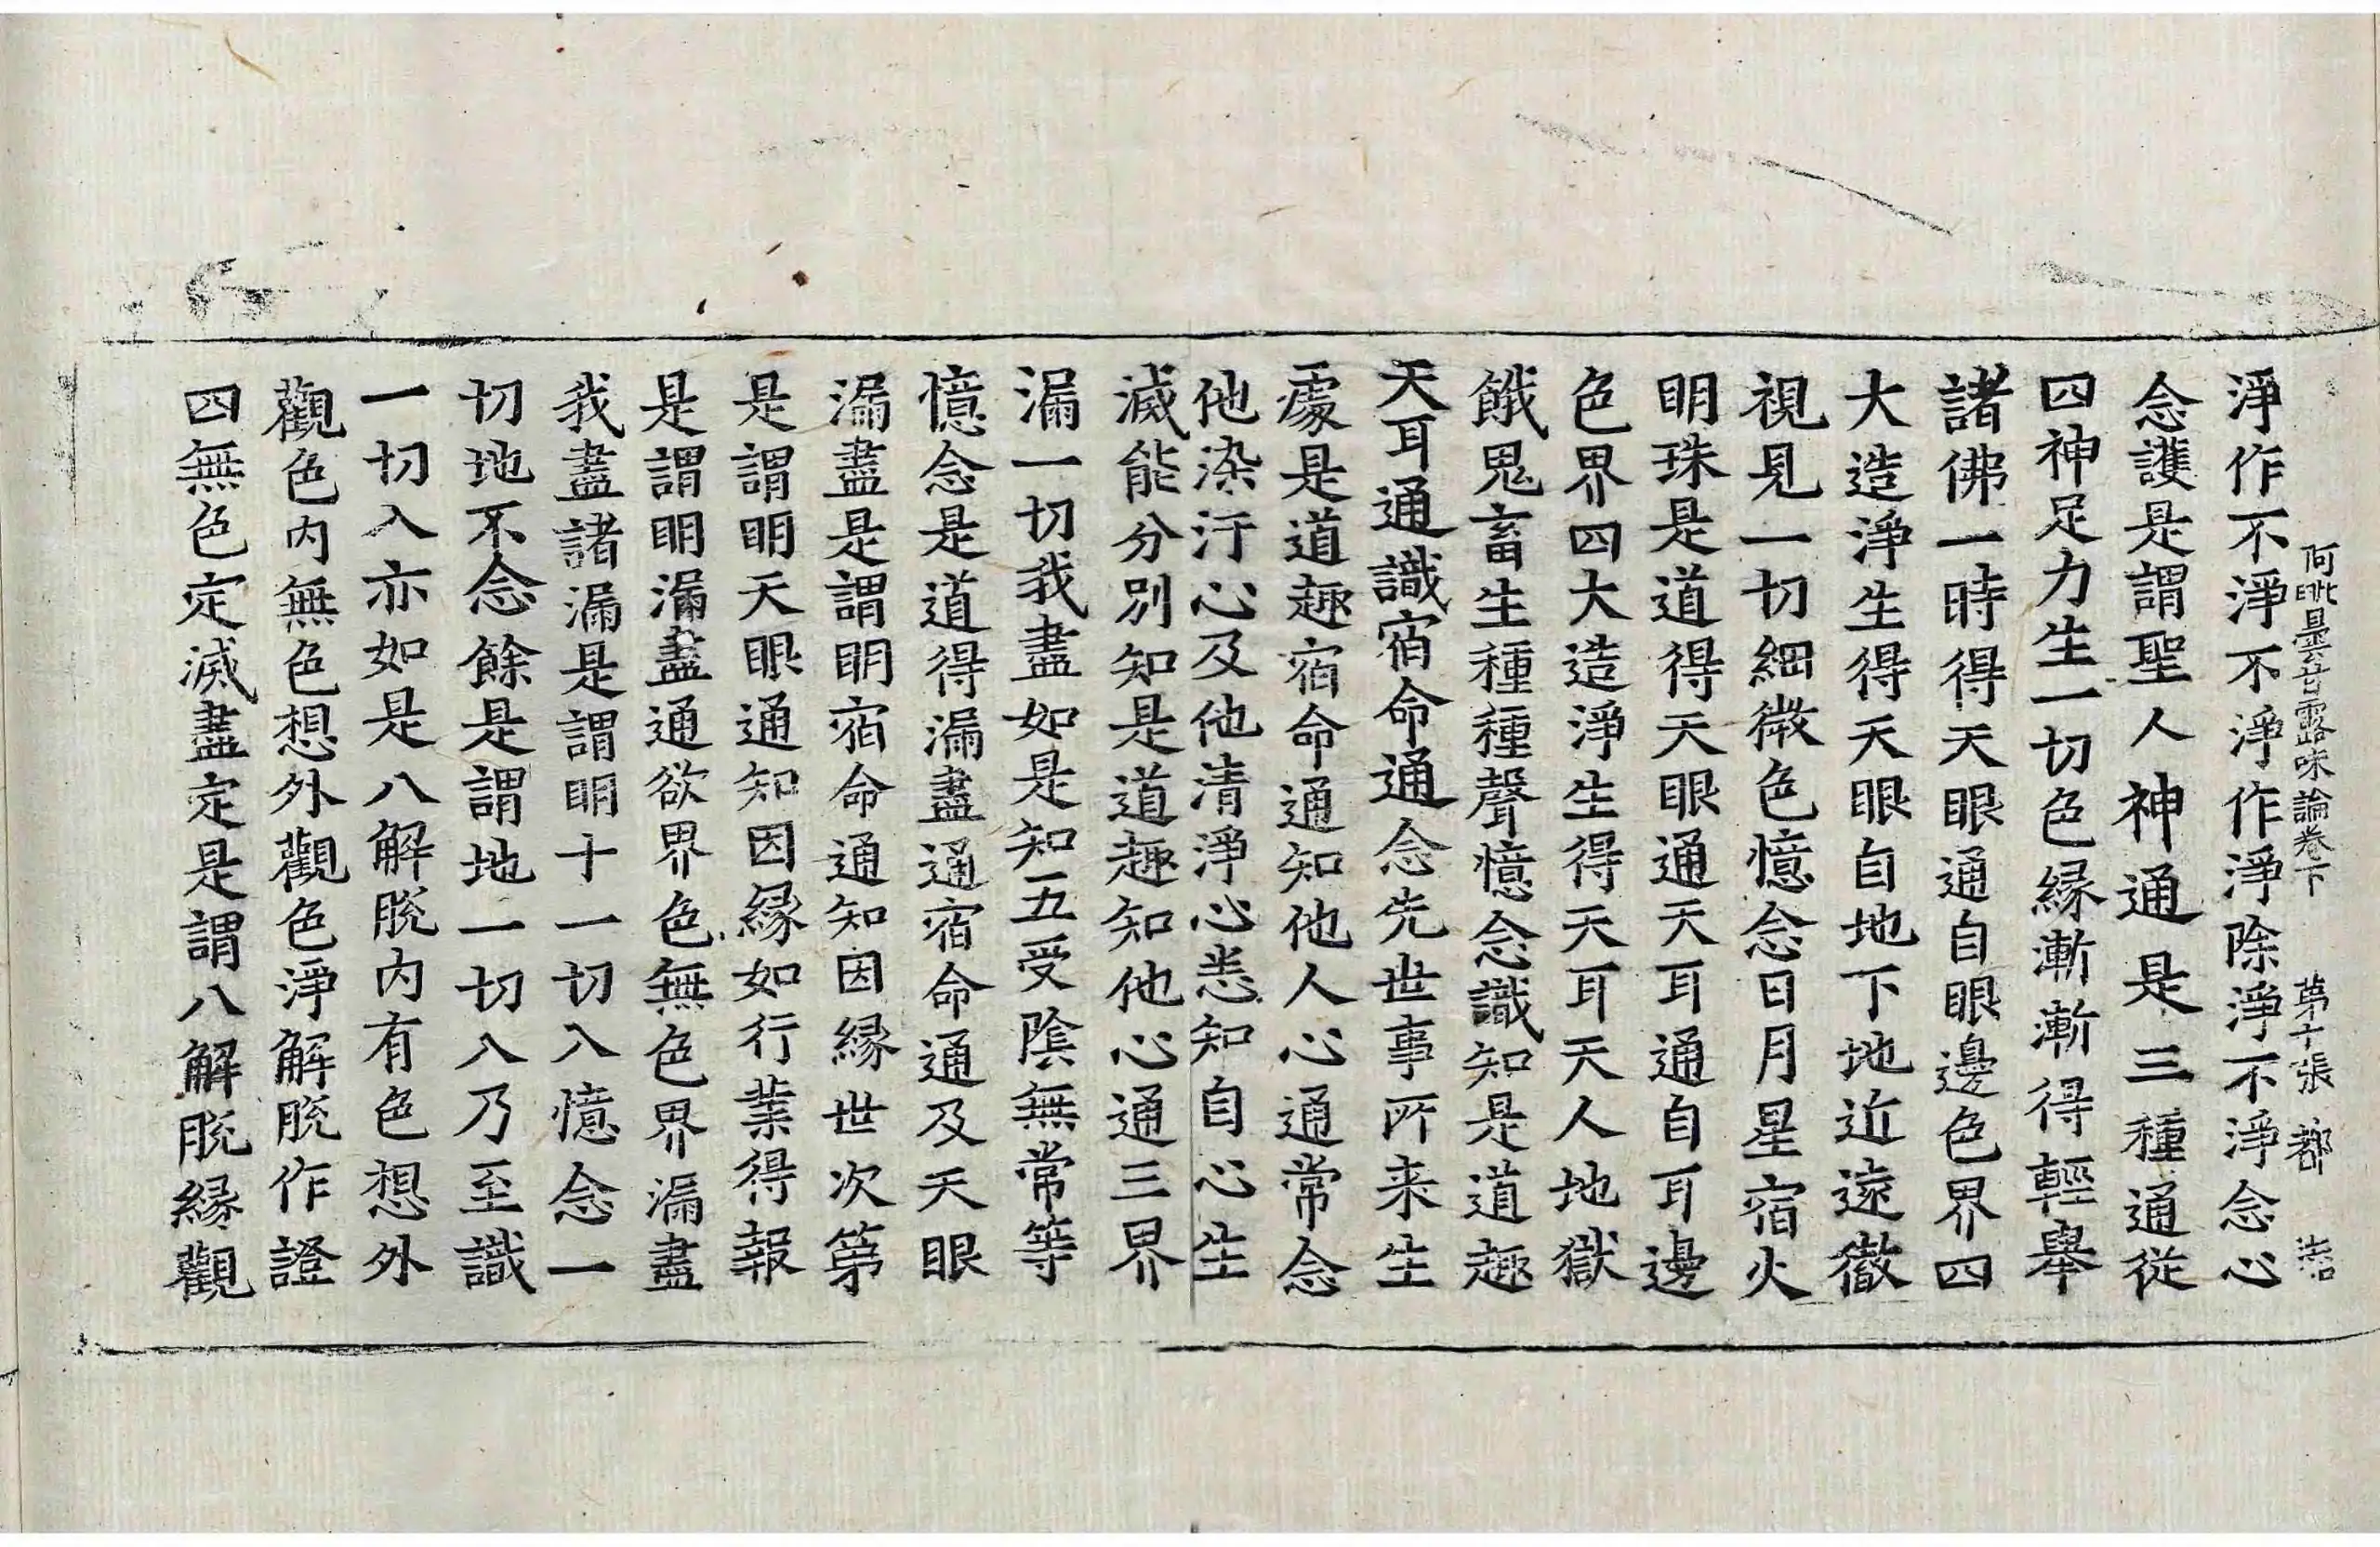 阿毗曇甘露味論卷下　第十張　都
淨作不淨不淨作淨除淨不淨念心
念護是謂聖人神通是三種通從
四神足力生一切色縁漸漸得輕舉
諸佛一時得天眼通自眼邊色界四
大造淨生得天眼自地下地近遠徹
視見一切細微色憶念日月星宿火
明珠是道得天眼通天耳通自耳邊
色界四大造淨生得天耳天人地獄
餓鬼畜生種種聲憶念識知是道趣
天耳通識宿命通念先世事所来生
處是道趣宿命通知他人心通常念
他染汙心及他清淨心悉知自心生
滅能分別知是道趣知他心通三界
漏一切我盡如是知五受陰無常等
憶念是道得漏盡通宿命通及天眼
漏盡是謂明宿命通知因縁世次第
是謂明天眼通知因縁如行業得報
是謂明漏盡通欲界色無色界漏盡
我盡諸漏是謂明十一切入憶念一
切地不念餘是謂地一切入乃至識
一切入亦如是八解脫内有色想外
觀色内無色想外觀色淨解脫作證
四無色定滅盡定是謂八解脫縁觀